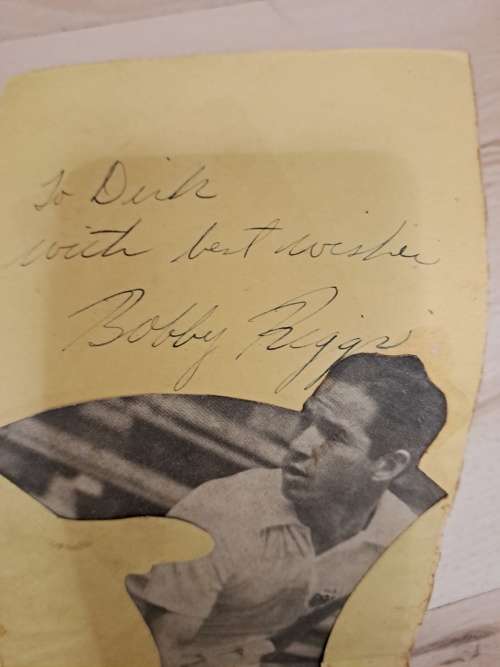 To Dirk
with best wishes
Bobby Riggs